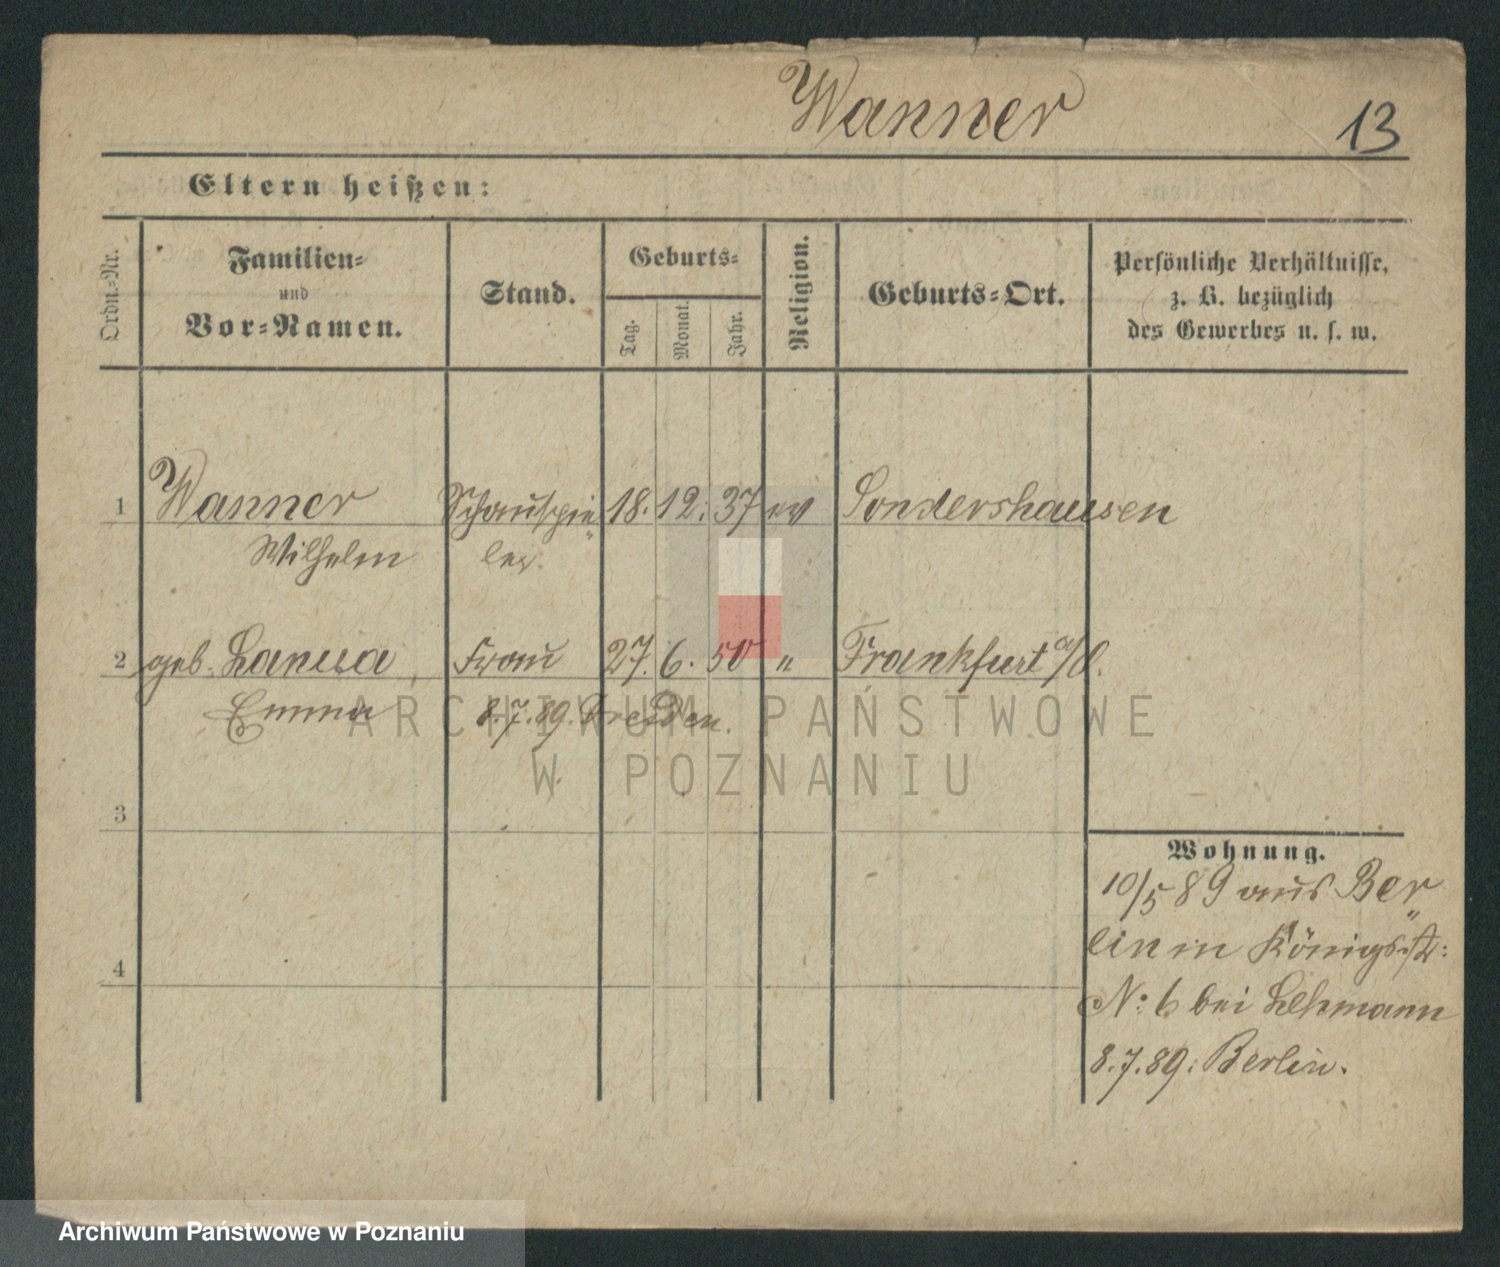 Wanner
13
Eltern heißen:
Ordn.-Nr.
Familien-
und
Vor-Namen.
Stand.
Geburts-
Tag.
Monat.
Jahr.
Religion.
Geburts-Ort.
Persönliche Verhältnisse,
z. B. bezüglich
des Gewerbes u. s. w.
1 Wanner Schauspie- 18. 12. 37 ev Sondershausen
Wilhelm ler.
2 geb. Frau 27. 6. 50 " Frankfurt a/O.
Emma 8.7.89. Dresden.
3
4
Wohnung.
10/5 89 aus Ber-
lin in Königsstr:
N: 6 bei Lehmann
8.7.89. Berlin.
ARCHIWUM PAŃSTWOWE
W POZNANIU
Archiwum Państwowe w Poznaniu